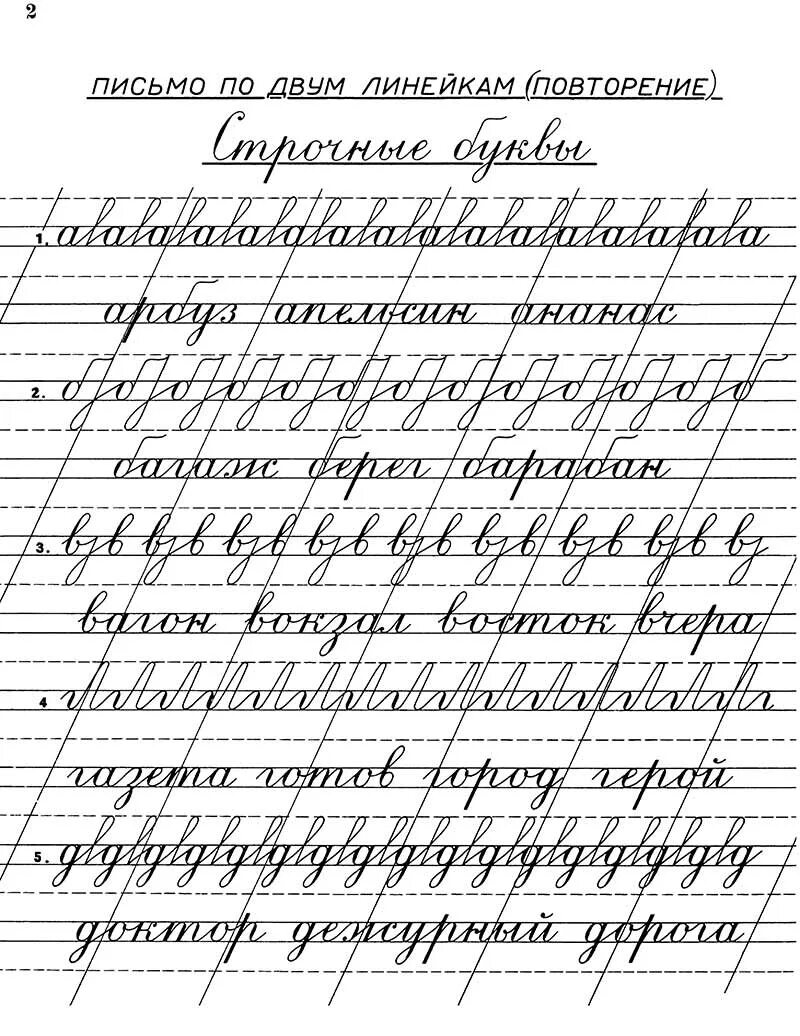 2
ПИСЬМО ПО ДВУМ ЛИНЕЙКАМ (ПОВТОРЕНИЕ)
Строчные буквы
1. а а а а а а а а а а а а а а а а
арбуз апельсин ананас
2. б б б б б б б б б б б б б
багаж берег барабан
3. вв вв вв вв вв вв вв вв в
вагон вокзал восток вчера
4 г г г г г г г г г г г г г г г г г г
газета готов город герой
5. д д д д д д д д д д д д д д д д д
доктор дежурный дорога